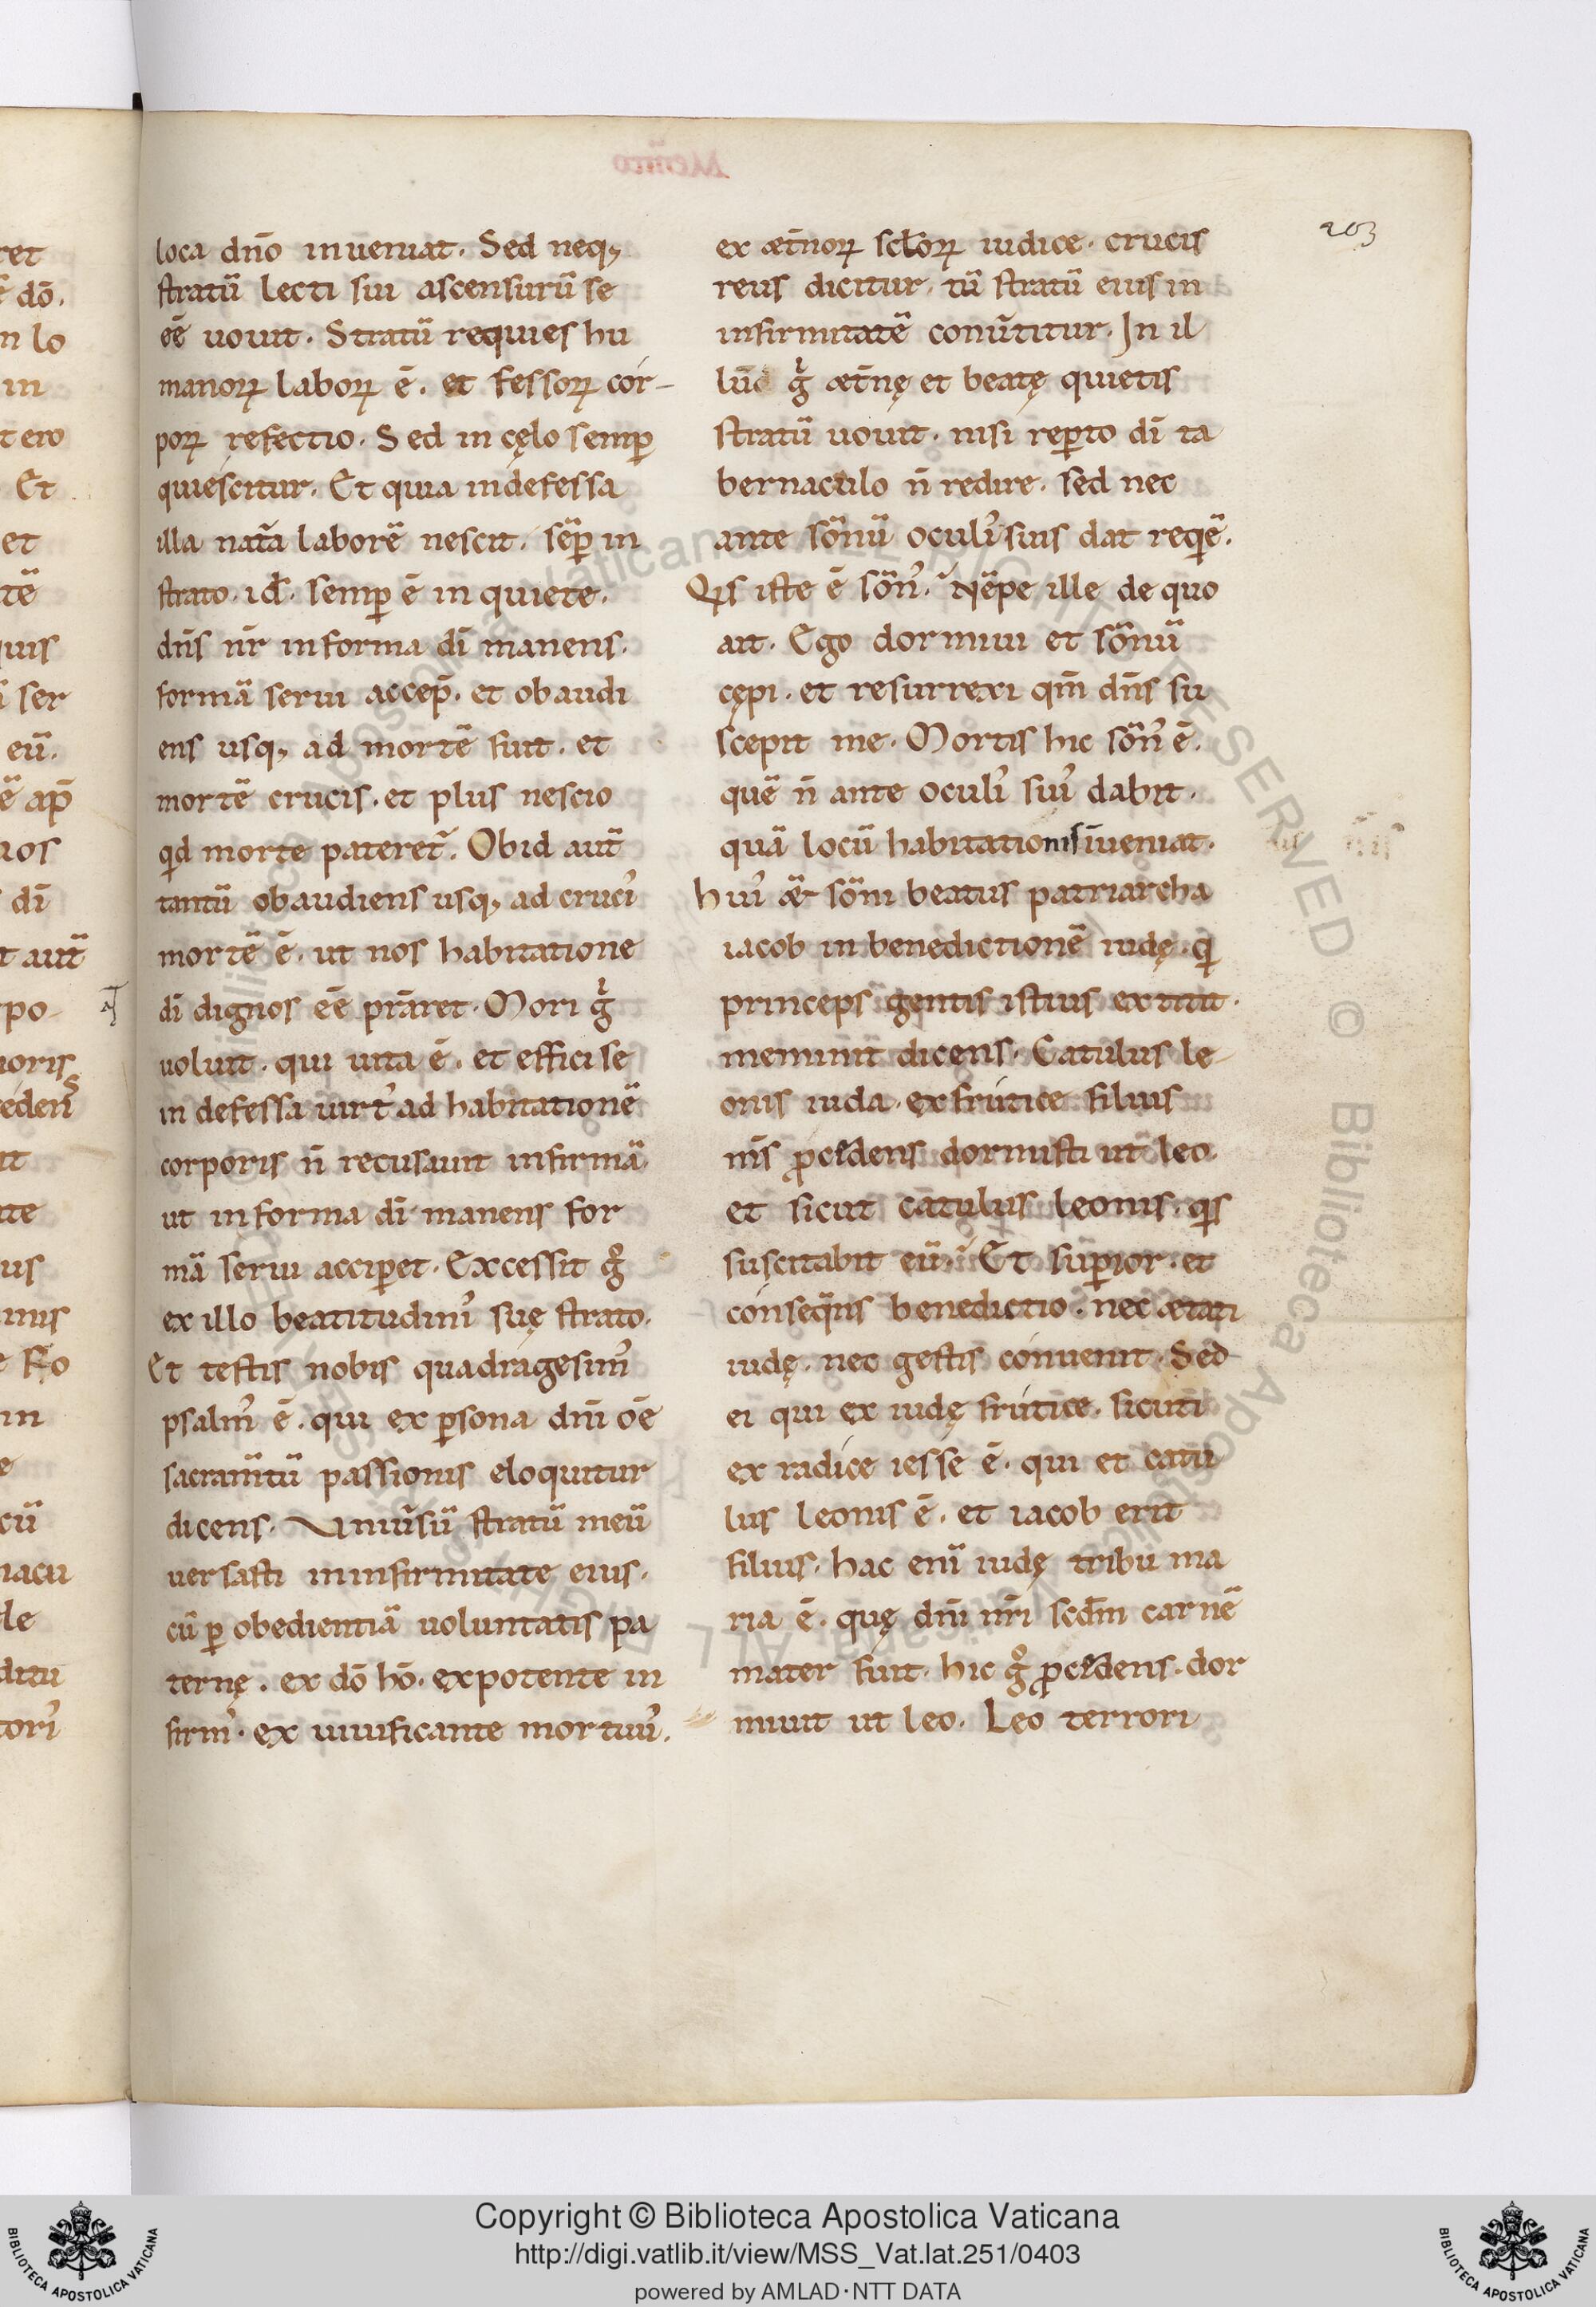 203
loca dn̄o inueniat. Sed neq;
stratū lecti sui ascensurū se
eē uouit. Stratū requies hu
manoꝝ laboꝝ ē. et fessoꝝ cor-
poꝝ refectio. Sed in cęlo semꝑ
quiescitur. Et quia indefessa
illa nat̄a laborē nescit. sēꝑ in
strato. id ē. semꝑ ē in quiete.
dn̄s nr̄ in forma dī manens.
formā serui accep̄. et obaudi
ens usq; ad mortē fuit. et
mortē crucis. et plus nescio
qd morte pateret̄. Ob id aut̄
tantū obaudiens usq; ad cruciꝰ
mortē ē. ut nos habitatione
dī dignos eē prāret. Mori gͥ
uoluit. qui uita ē. et effici se
in defessa uirtꝰ ad habitationē
corporis n̄ recusauit infirmā.
ut in forma dī manens for
mā serui acciꝑet. Excessit gͦ
ex illo beatitudiniꝰ suę strato.
Et testis nobis quadragesimꝰ
psalmꝰ ē. qui ex ꝑsona dn̄i oē
sacram̄tū passionis eloquitur
dicens. Uniūsū stratū meū
uersasti in infirmitate eius.
cū ꝑ obedientiā uoluntatis pa
ternę. ex dō hō. ex potente in
firmꝰ. ex uiuificante mortuuꝰ.
ex æt̄noꝝ scl̄oꝝ iudice. crucis
reus dicitur. tū stratū eius in
infirmitatē conūtitur. In il
lū gͥ æt̄nę et beatę quietis
stratū uouit. nisi reꝑto dī ta
bernaculo n̄ redire. sed nec
ante sōnū oculiꝰ suis dat reqͥē.
Qͥs iste ē sōnꝰ. Nēpe ille de quo
ait. Ego dormiui et sōnū
cępi. et resurrexi qm̄ dn̄s su
scepit me. Mortis hic sōnꝰ ē.
quē n̄ ante oculiꝰ suiꝰ dabit.
quā locū habitationis īueniat.
huiꝰ & sōni beatus patriarcha
iacob in benedictionē iudę. qͥ
princeps gentis istius extitit.
meminit dicens. Catulus le-
onis iuda. ex frutice filius
mīs ꝓcidens dormisti ut leo.
et sicut catulus leonis. qͥs
suscitabit eū. Et suꝑior. et
conseq̄ns benedictio. nec ætati
iudę. nec gestis conuenit. Sed
ei qui ex iudę frutice. sicuti
ex radice iesse ē. qui et catu
lus leonis ē. et iacob erit
filius. hac enī iudę tribu ma
ria ē. quę dn̄i nr̄i scdm̄ carnē
mater fuit. hic gͦ ꝓcidens. dor
miuit ut leo. Leo terrori
Copyright © Biblioteca Apostolica Vaticana
http://digi.vatlib.it/view/MSS_Vat.lat.251/0403
powered by AMLAD·NTT DATA